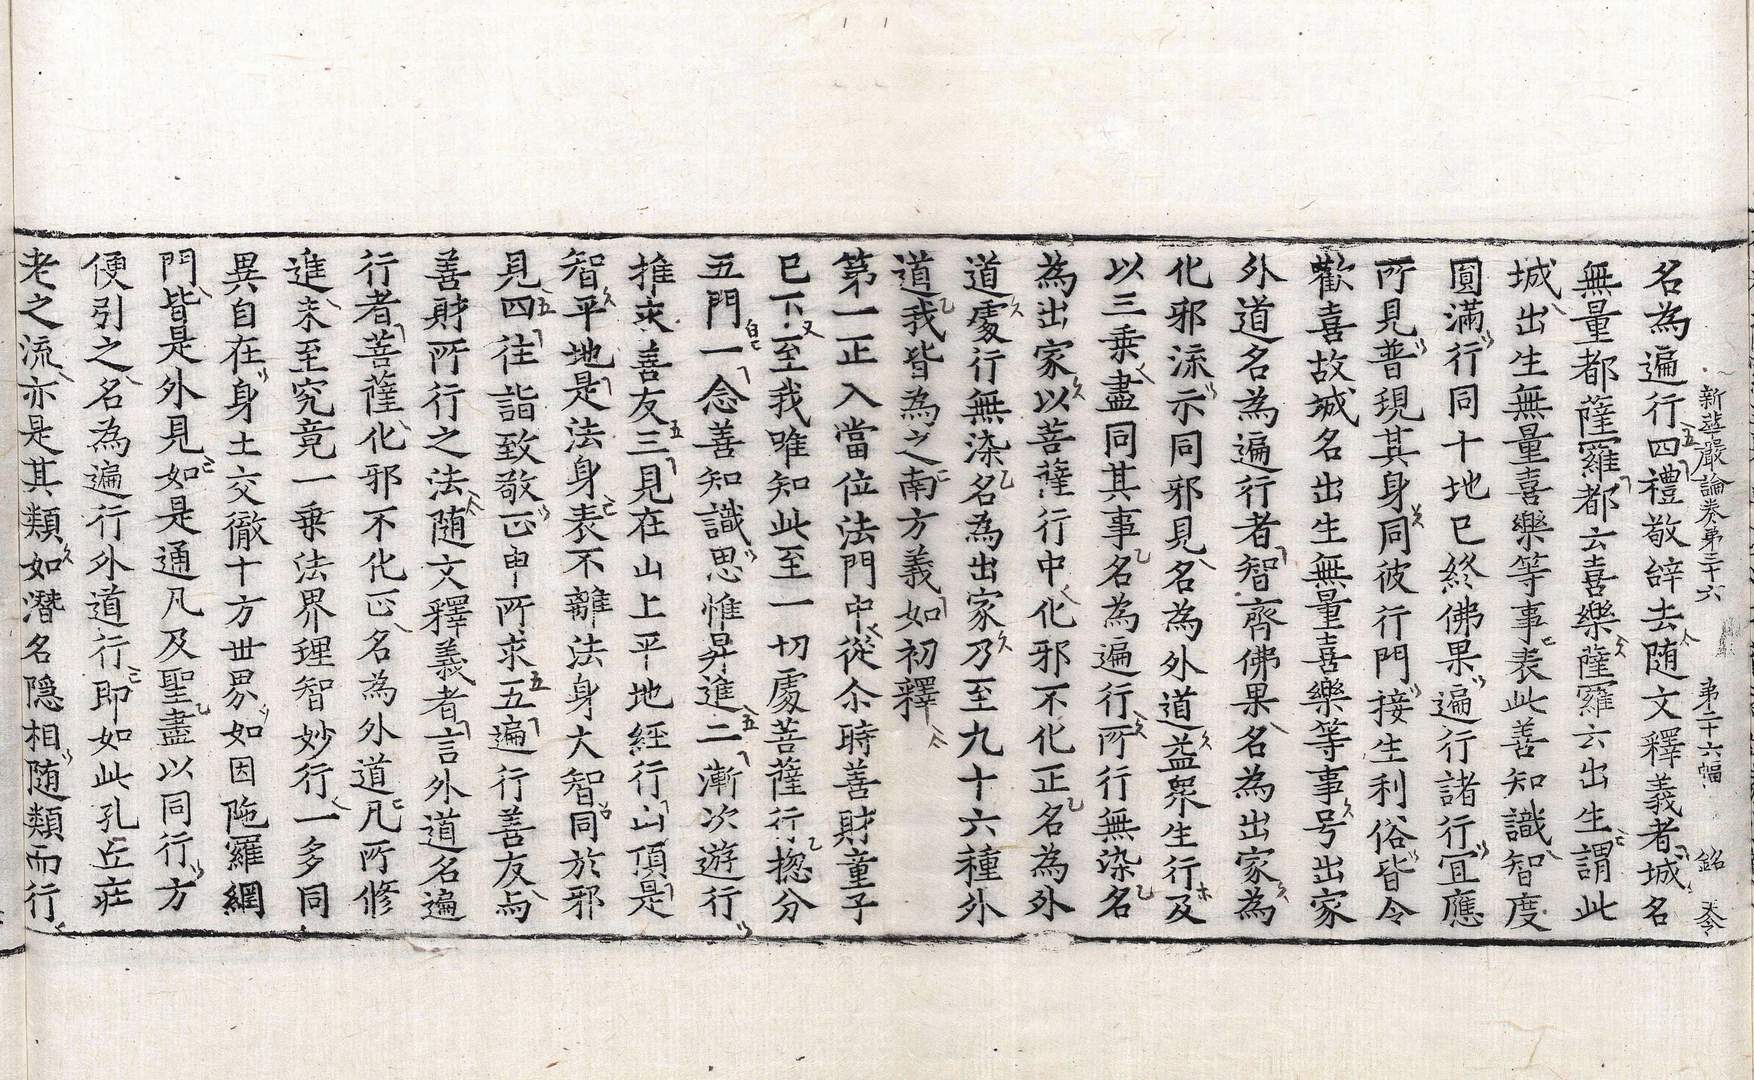 新華嚴論卷第三十六 第二十六幅 銘 琴
名為遍行四禮敬辭去随文釋義者城名
無量都薩羅都云喜樂薩羅云出生謂此
城出生無量喜樂等事表此善知識智度
圓滿行同十地已終佛果遍行諸行冝應
所見普現其身同彼行門接生利俗皆令
歡喜故城名出生無量喜樂等事号出家
外道名為遍行者智齊佛果名為出家為
化邪流示同邪見名為外道益衆生行及
以三乗盡同其事名為遍行所行無染名
為出家以菩薩行中化邪不化正名為外
道處行無染名為出家乃至九十六種外
道我皆為之南方義如初釋
第一正入當位法門中從尒時善財童子
已下至我唯知此至一切處菩薩行揔分
五門一念善知識思惟昇進二漸次遊行
推求善友三見在山上平地經行山頂是
智平地是法身表不離法身大智同於邪
見四往詣致敬正申所求五遍行善友与
善財所行之法随文釋義者言外道名遍
行者菩薩化邪不化正名為外道凡所修
進未至究竟一乗法界理智妙行一多同
異自在身土交徹十方世界如因陁羅網
門皆是外見如是通凡及聖盡以同行方
便引之名為遍行外道行即如此孔丘莊
老之流亦是其類如潛名隐相随類而行